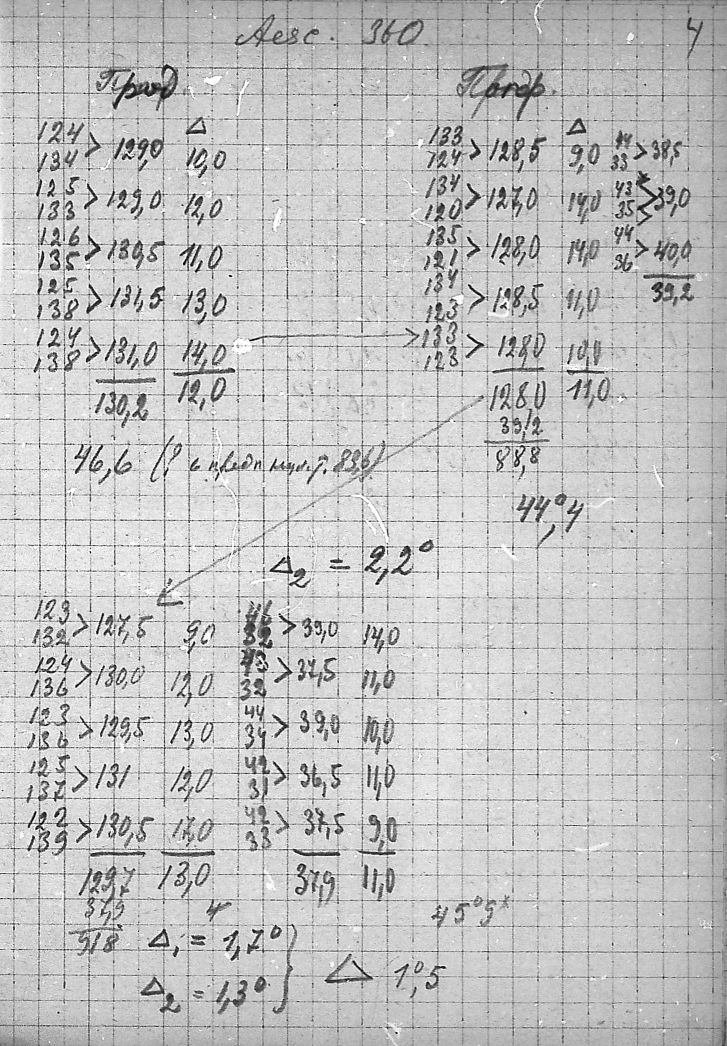 Aesc. 360 4
Δ
124
134 > 129,0 10,0
125
133 > 129,0 12,0
126
135 > 130,5 11,0
125
138 > 131,5 13,0
124
138 > 131,0 14,0
130,2 12,0
46,6
Повтор.
Δ
133
124 > 128,5 9,0 44
33 > 38,5
134
120 > 127,0 14,0 43
35 > 39,0
135
121 > 128,0 14,0 44
36 > 40,0
39,2
134
123 > 128,5 11,0
133
123 > 128,0 10,0
128,0 11,0
39,2
88,8
44°,4
Δ2 = 2,2°
123
132 > 127,5 9,0
124
136 > 130,0 12,0
123
136 > 129,5 13,0
125
137 > 131 12,0
122
139 > 130,5 17,0
129,7 13,0
37,9
918
32 > 39,0 14,0
43
32 > 37,5 11,0
44
34 > 39,0 10,0
42
31 > 36,5 11,0
42
33 > 37,5 9,0
37,9 11,0
45°9*
Δ1 = 1,7°
Δ2 = 1,3° } Δ 1°,5